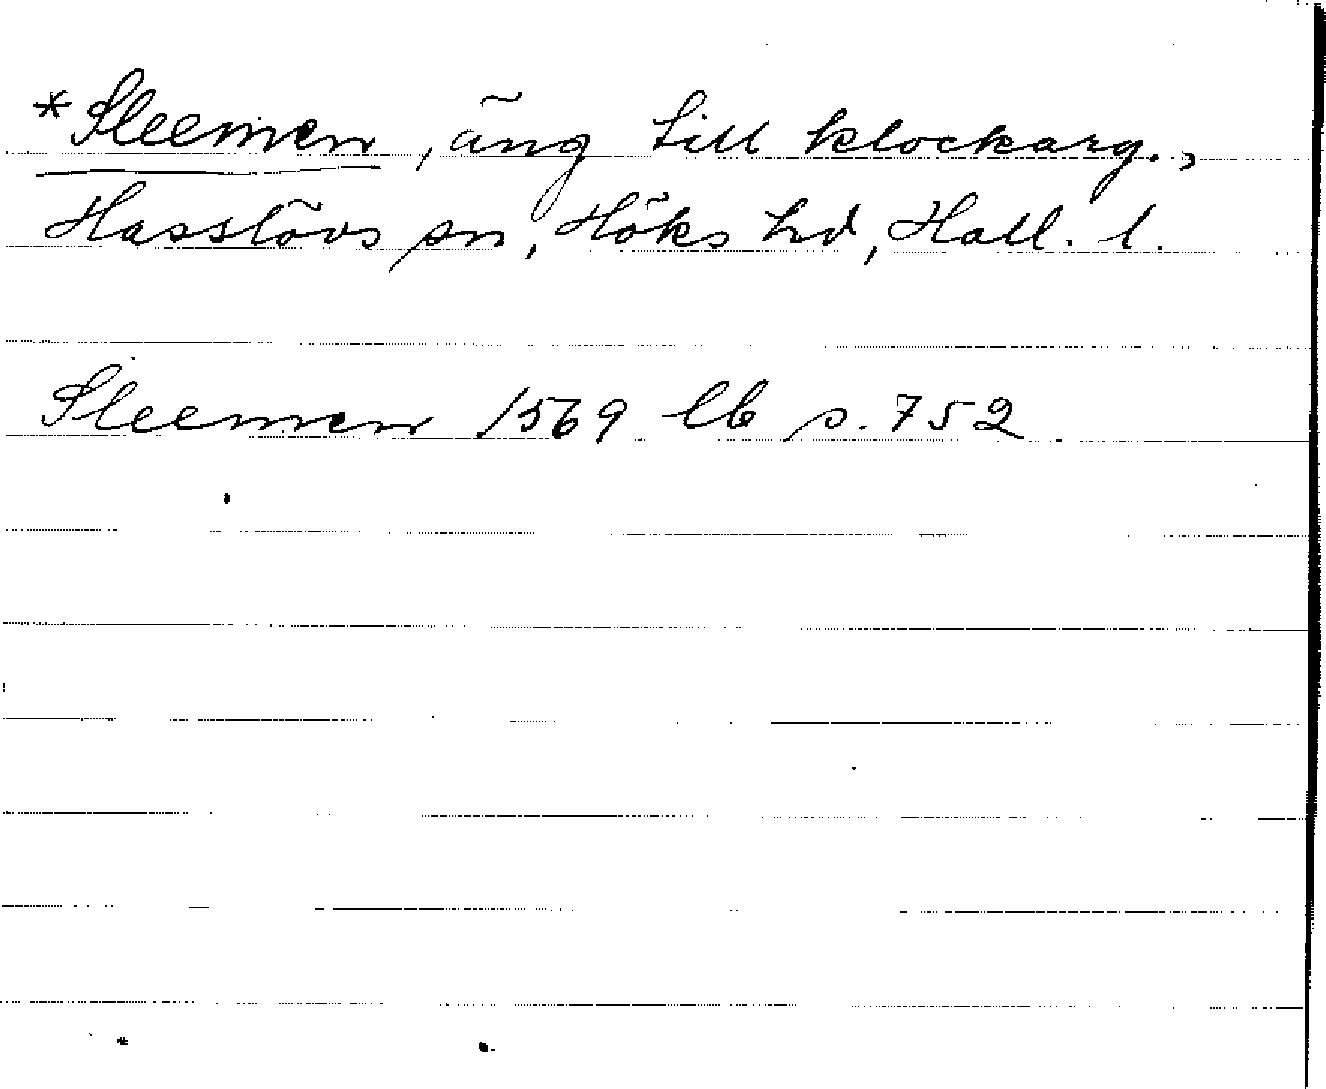 *Sleemen, äng till klockarg.,
Hasslövs sn, Höks hd, Hall. l.
Sleemen 1569 lb s. 752